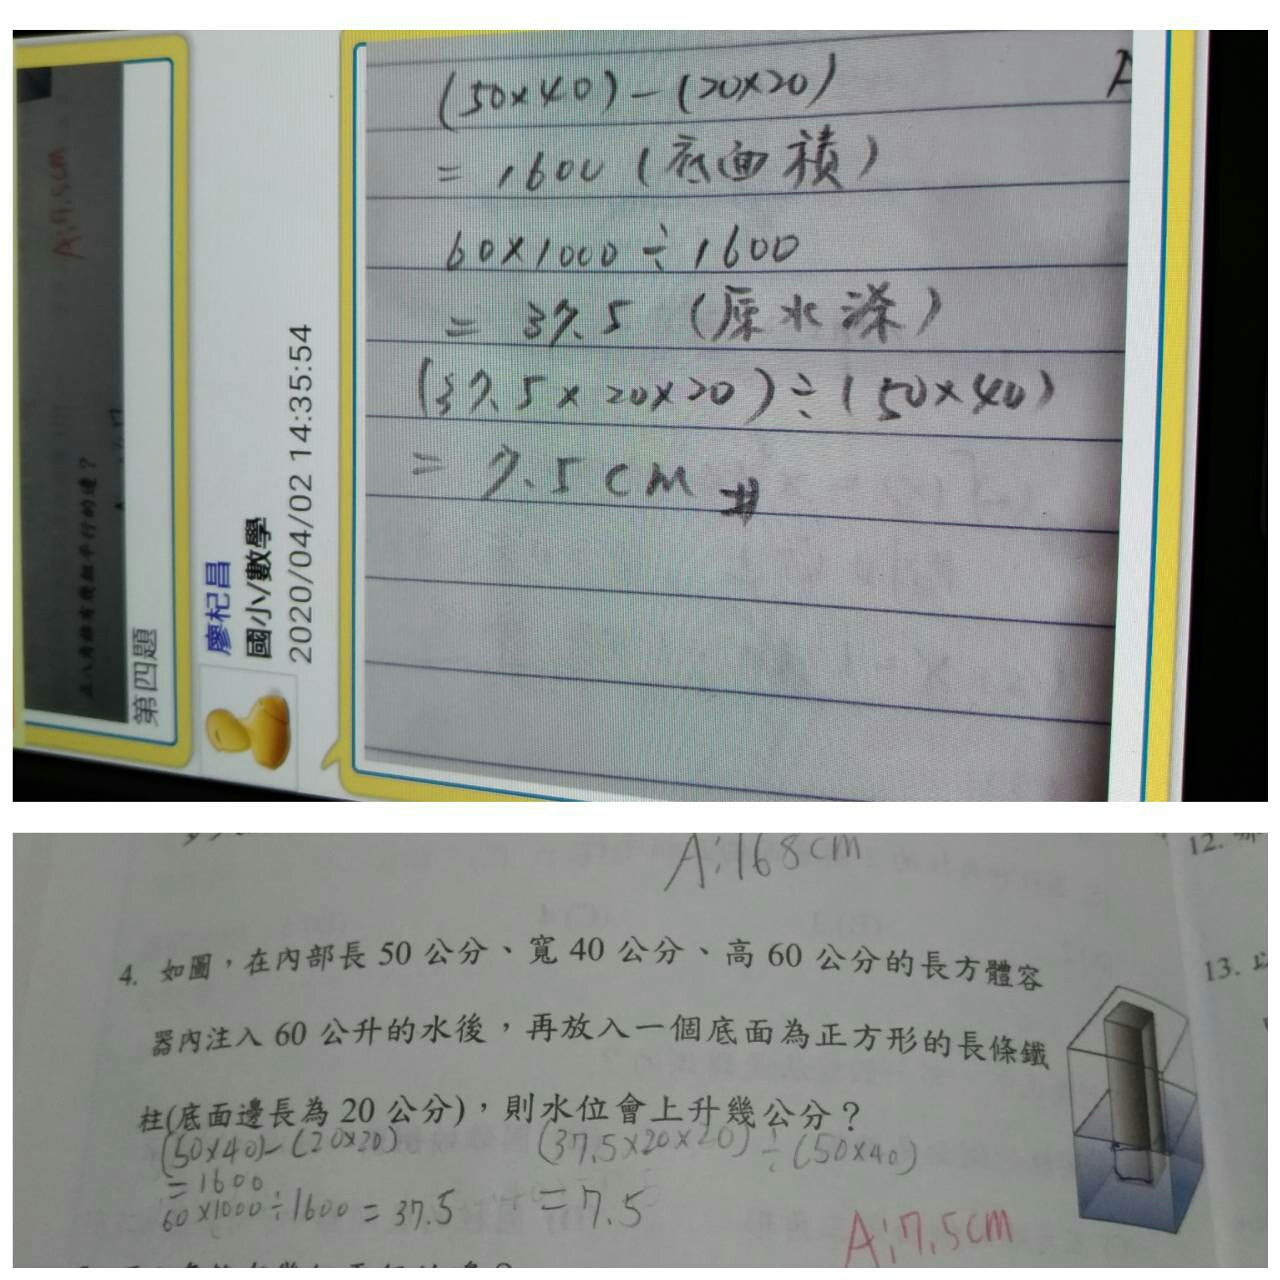 (50×40)-(20×20)
=1600(底面積)
60×1000÷1600
= 37.5 (原水深)
(37.5×20×20)÷(50×40)
= 7.5cm #
A:7.5cm
第四題
廖杞昌
國小/數學
2020/04/02 14:35:54
A:168cm
4. 如圖,在內部長 50 公分、寬 40 公分、高 60 公分的長方體容
器內注入 60 公升的水後,再放入一個底面為正方形的長條鐵
柱(底面邊長為 20 公分),則水位會上升幾公分?
(50×40)-(20×20)
=1600
60×1000÷1600=37.5
(37.5×20×20)÷(50×40)
=7.5
A:7.5cm
12.
13.